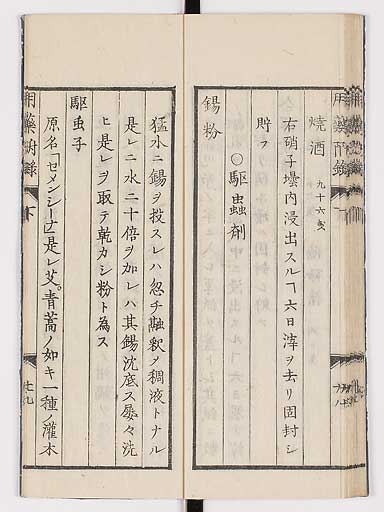 燒酒 九十六戔
右硝子壜内浸出スルヿ六日滓ヲ去リ固封シ
貯フ
○驅蟲劑
錫粉
猛水ニ錫ヲ投スレハ忽チ融釈メ稠液トナル
是レニ水二十倍ヲ加レハ其錫沈底ス屡々洗
ヒ是レヲ取テ乾カシ粉ト為ス
驅虫子
原名「セメンシーナ」是レ艾。青蒿ノ如キ一種ノ灌木
用藥附錄
下